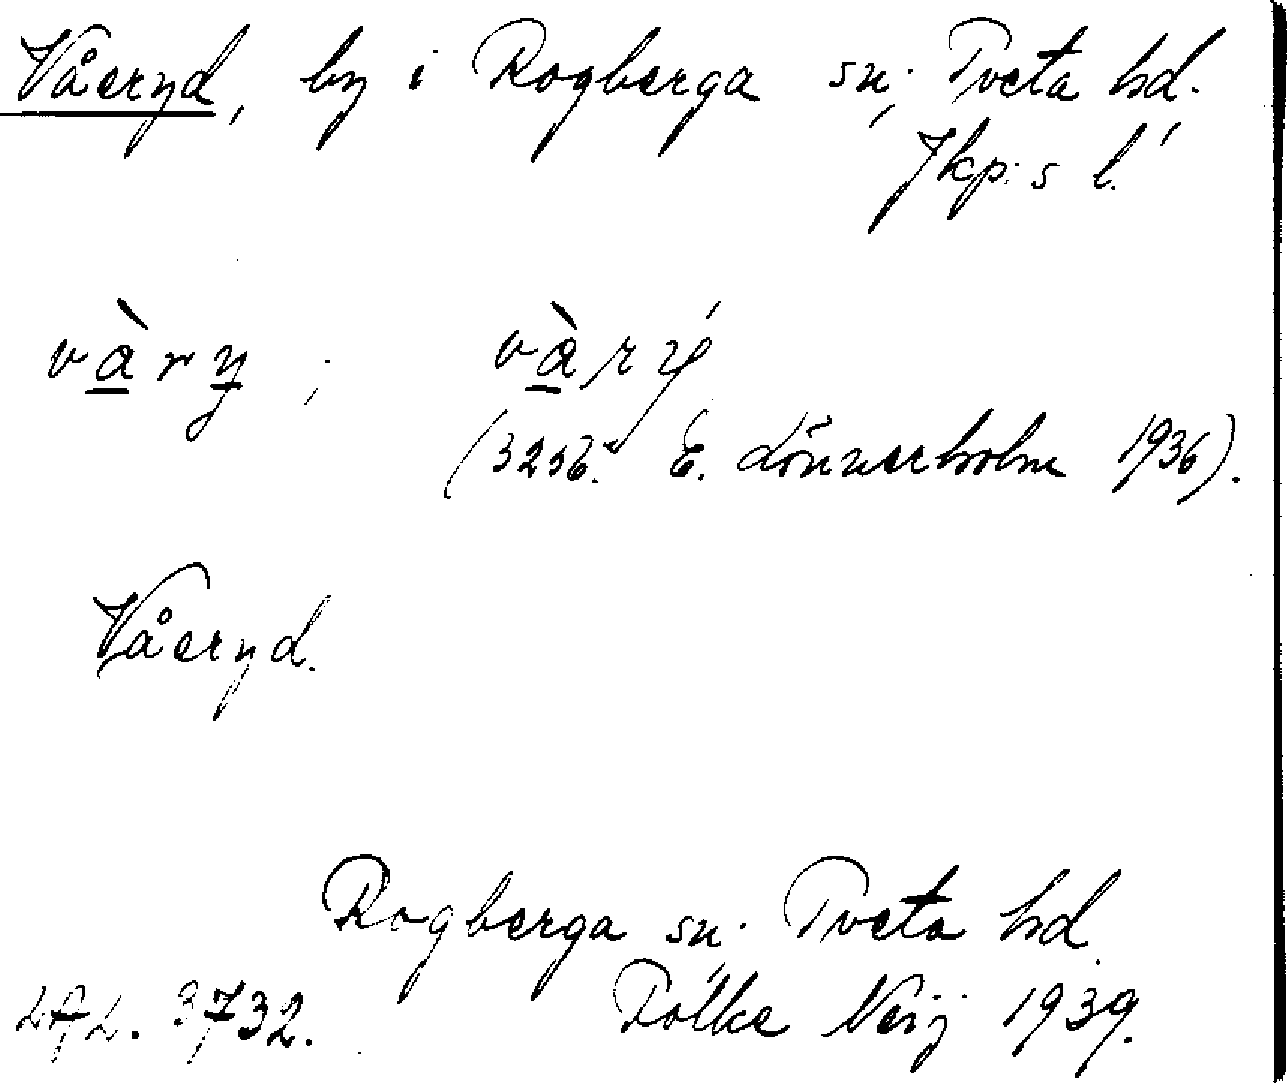 Våeryd, by i Rogberga sn, Tveta hd.
Jkp:s l.
vàry ; vàrý
(3256. E. Lönnerholm 1936).
Våeryd.
Rogberga sn. Tveta hd.
3732. Folke Neij 1939.